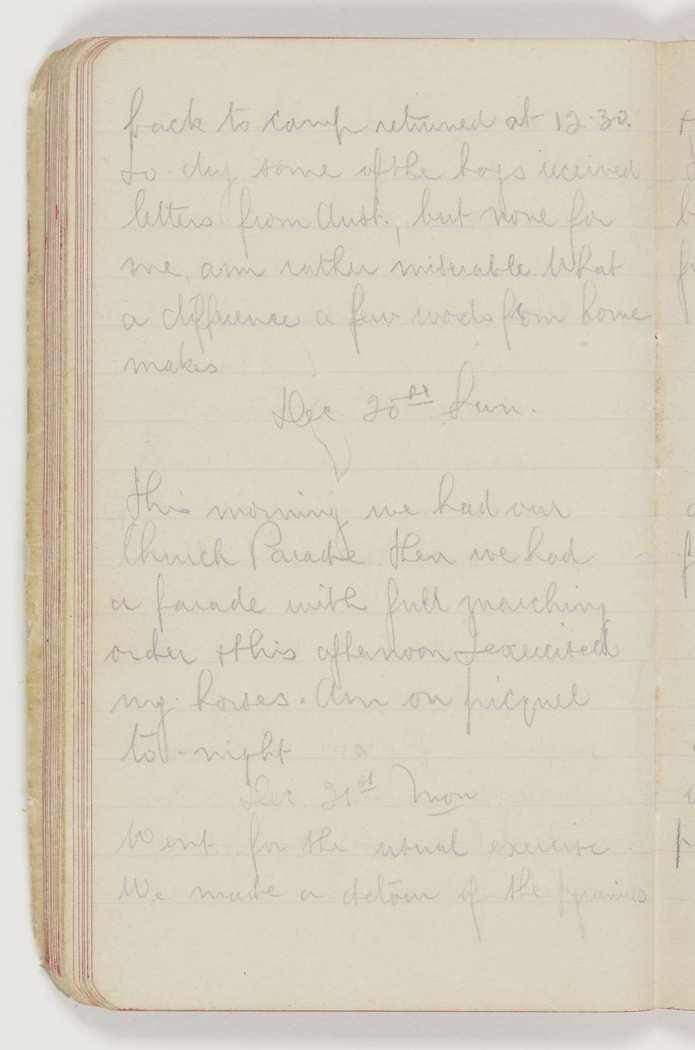 back to camp returned at 12.30.
To day some of the boys received
letters from Aust., but none for
me, am rather miserable. What
a difference a few words from home
makes
Dec 20st Sun.
This morning we had our
Church Parade then we had
a parade with full marching
order & this afternoon I exercised
my horses. Am on picquet
to-night
Dec 21st Mon
Went for the usual exercise.
We made a detour of the pyramids